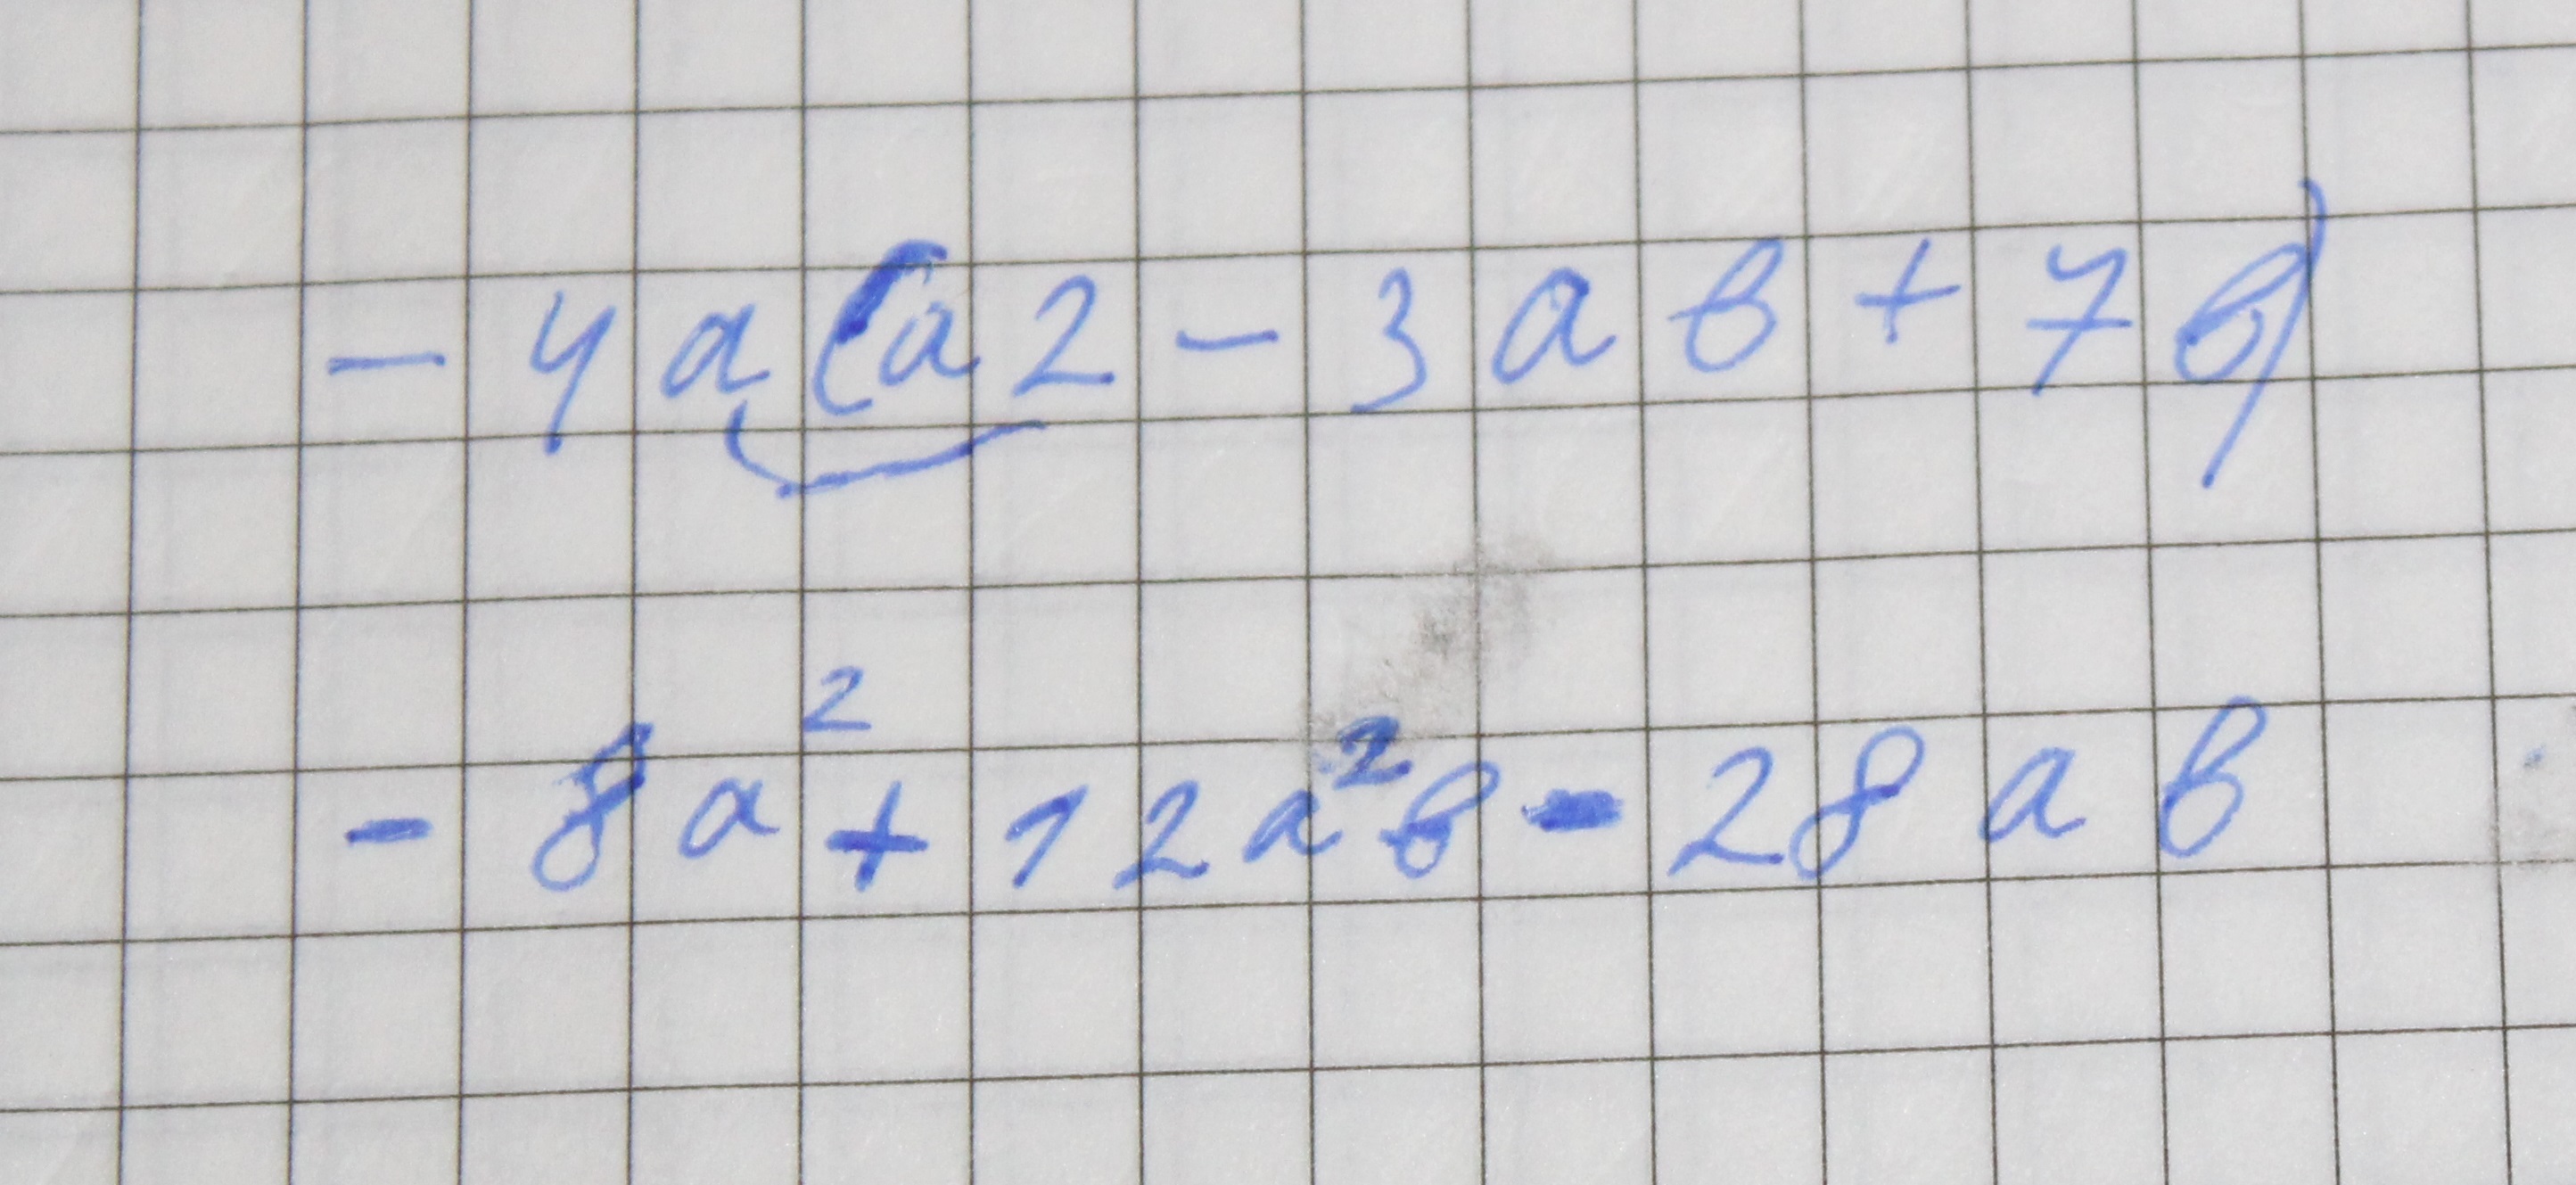 -4a(a2-3ab+7b)
-8a²+12a²b-28ab